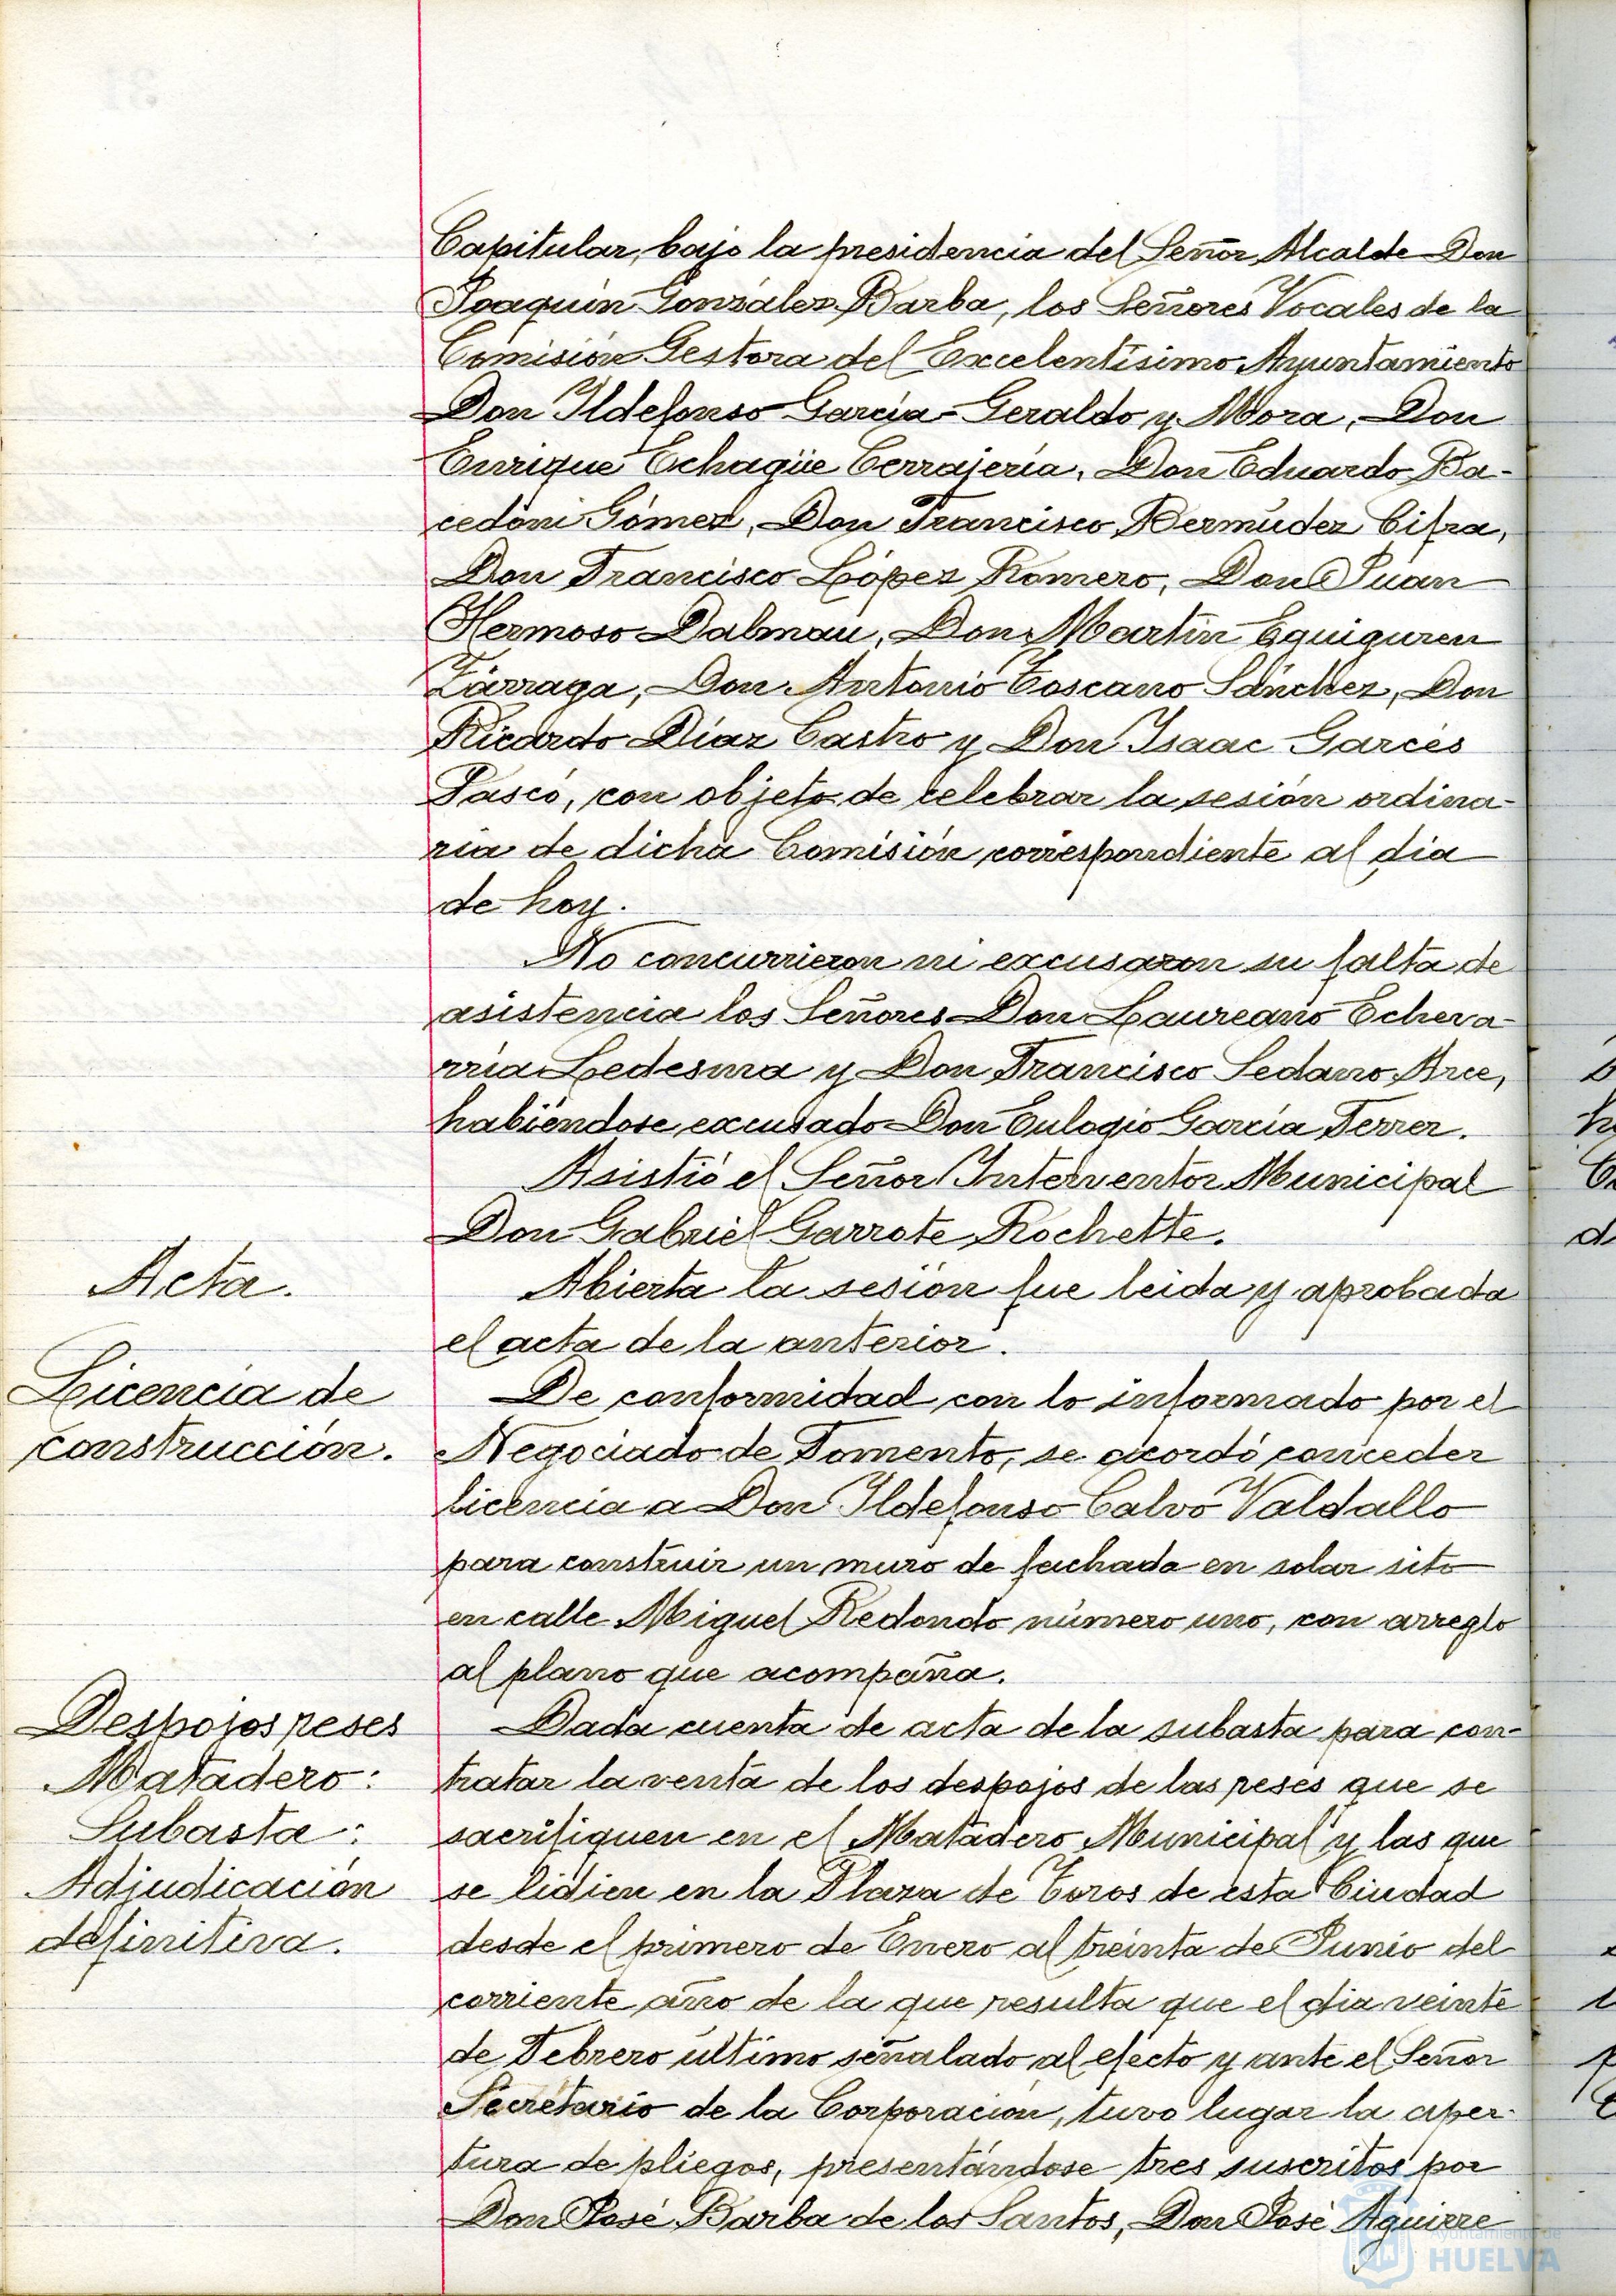 Capitular, bajo la presidencia del Señor Alcalde Don
Joaquín González Barba, los Señores Vocales de la
Comisión Gestora del Excelentísimo Ayuntamiento
Don Ildefonso García-Geraldo y Mora, Don
Enrique Echagüe Cerrajería, Don Eduardo Ba-
cedóni Gómez, Don Francisco Bermúdez Cifra,
Don Francisco López Romero, Don Juan
Hermoso Dalmau, Don Martín Eguiguren
Zárraga, Don Antonio Toscano Sánchez, Don
Ricardo Díaz Castro y Don Isaac Garcés
Pascó, con objeto de celebrar la sesión ordina-
ria de dicha Comisión correspondiente al dia
de hoy.
No concurrieron ni excusaron su falta de
asistencia los Señores Don Laureano Echeva-
rria Ledesma y Don Francisco Sedano Arce,
habiéndose excusado Don Eulogio García Ferrer.
Asistió el Señor Interventor Municipal
Don Gabriel Garrote Rochette.
Acta.
Abierta la sesión fue leida y aprobada
el acta de la anterior.
Licencia de
construcción.
De conformidad con lo informado por el
Negociado de Fomento, se acordó conceder
licencia a Don Ildefonso Calvo Valdallo
para construir un muro de fachada en solar sito
en calle Miguel Redondo número uno, con arreglo
al plano que acompaña.
Despojos reses
Matadero:
Subasta:
Adjudicación
definitiva.
Dada cuenta de acta de la subasta para con-
tratar la venta de los despojos de las reses que se
sacrifiquen en el Matadero Municipal y las que
se lidien en la Plaza de Toros de esta Ciudad
desde el primero de Enero al treinta de Junio del
corriente año de la que resulta que el dia veinte
de Febrero último señalado al efecto y ante el Señor
Secretario de la Corporación, tuvo lugar la aper-
tura de pliegos, presentándose tres suscritos por
Don José Barba de los Santos, Don José Aguirre
Ayuntamiento de
HUELVA